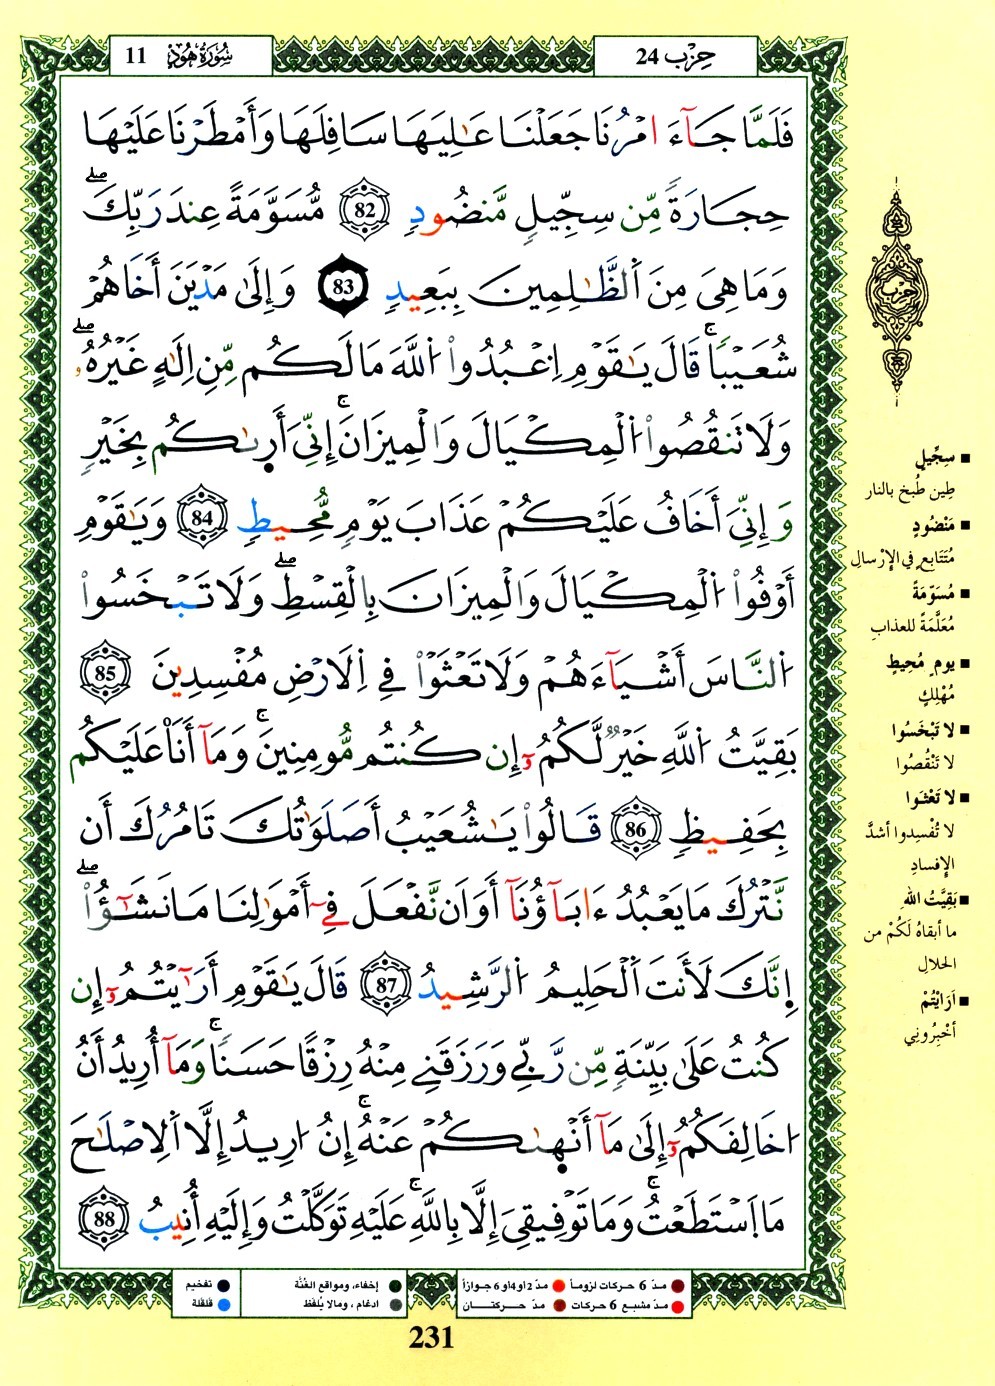 حِزْب 24
سُورَةُ هُود 11
فَلَمَّا جَآءَ امْرُنَا جَعَلْنَا عَٰلِيَهَا سَافِلَهَا وَأَمْطَرْنَا عَلَيْهَا
حِجَارَةً مِّن سِجِّيلٖ مَّنضُودٖ 82 مُّسَوَّمَةً عِندَ رَبِّكَۖ
وَمَا هِيَ مِنَ اَ۬لظَّٰلِمِينَ بِبَعِيدٖ 83 وَإِلَىٰ مَدْيَنَ أَخَاهُمْ
شُعَيْباٗۚ قَالَ يَٰقَوْمِ اِ۟عْبُدُوا۟ اُ۬للَّهَ مَا لَكُم مِّنِ اِلَٰهٍ غَيْرُهُۥۖ
وَلَا تَنقُصُوا۟ اُ۬لْمِكْيَالَ وَالْمِيزَانَۚ إِنِّيَ أَر۪ىٰكُم بِخَيْرٖ
وَإِنِّيَ أَخَافُ عَلَيْكُمْ عَذَابَ يَوْمٖ مُّحِيطٖ 84 وَيَٰقَوْمِ
أَوْفُوا۟ اُ۬لْمِكْيَالَ وَالْمِيزَانَ بِالْقِسْطِۖ وَلَا تَبْخَسُوا۟
اُ۬لنَّاسَ أَشْيَآءَهُمْ وَلَا تَعْثَوْا۟ فِي اِ۬لَارْضِ مُفْسِدِينَ 85
بَقِيَّتُ اُ۬للَّهِ خَيْرٞ لَّكُمُۥٓ إِن كُنتُم مُّومِنِينَۚ وَمَآ أَنَا۠ عَلَيْكُم
بِحَفِيظٖ 86 قَالُوا۟ يَٰشُعَيْبُ أَصَلَوَٰتُكَ تَامُرُكَ أَن
نَّتْرُكَ مَا يَعْبُدُ ءَابَآؤُنَآ أَوَ ان نَّفْعَلَ فِےٓ أَمْوَٰلِنَا مَا نَشَٰٓؤُا۟ۖ
إِنَّكَ لَأَنتَ اَ۬لْحَلِيمُ اُ۬لرَّشِيدُ 87 قَالَ يَٰقَوْمِ أَرَٰٓيْتُمُۥٓ إِن
كُنتُ عَلَىٰ بَيِّنَةٖ مِّن رَّبِّے وَرَزَقَنِے مِنْهُ رِزْقاً حَسَناٗۚ وَمَآ أُرِيدُ أَنُ
ا۟خَالِفَكُمُۥٓ إِلَىٰ مَآ أَنْه۪ىٰكُمْ عَنْهُۚ إِنُ ا۟رِيدُ إِلَّا اَ۬لِاصْلَٰحَ
مَا اَ۪سْتَطَعْتُۚ وَمَا تَوْفِيقِيَ إِلَّا بِاللَّهِۚ عَلَيْهِ تَوَكَّلْتُ وَإِلَيْهِ أُنِيبُ 88
حزب
■ سِجِّيلٍ
طِين طُبخ بالنار
■ مَنْضُودٍ
مُتَتَابِعٍ في الإرْسالِ
■ مُسَوّمَةً
مُعَلَّمَةً للعذابِ
■ يومٍ مُحِيطٍ
مُهْلِكٍ
■ لا تَبْخَسُوا
لا تَنْقُصُوا
■ لا تَعْثَوا
لا تُفْسِدوا أشدَّ
الإفسادِ
■ بَقِيَّتُ الله
ما أبقاهُ لَكُمْ من
الحلال
■ أرَايْتُمْ
أخْبِرُوني
مدّ 6 حركات لزوماً ● مدّ 2 او 4 او 6 جوازاً
مدّ مشبع 6 حركات ● مدّ حركتان
إخفاء، ومواقع الغُنَّة ● تفخيم
ادغام، وما لا يُلفَظ ● قلقلة
231